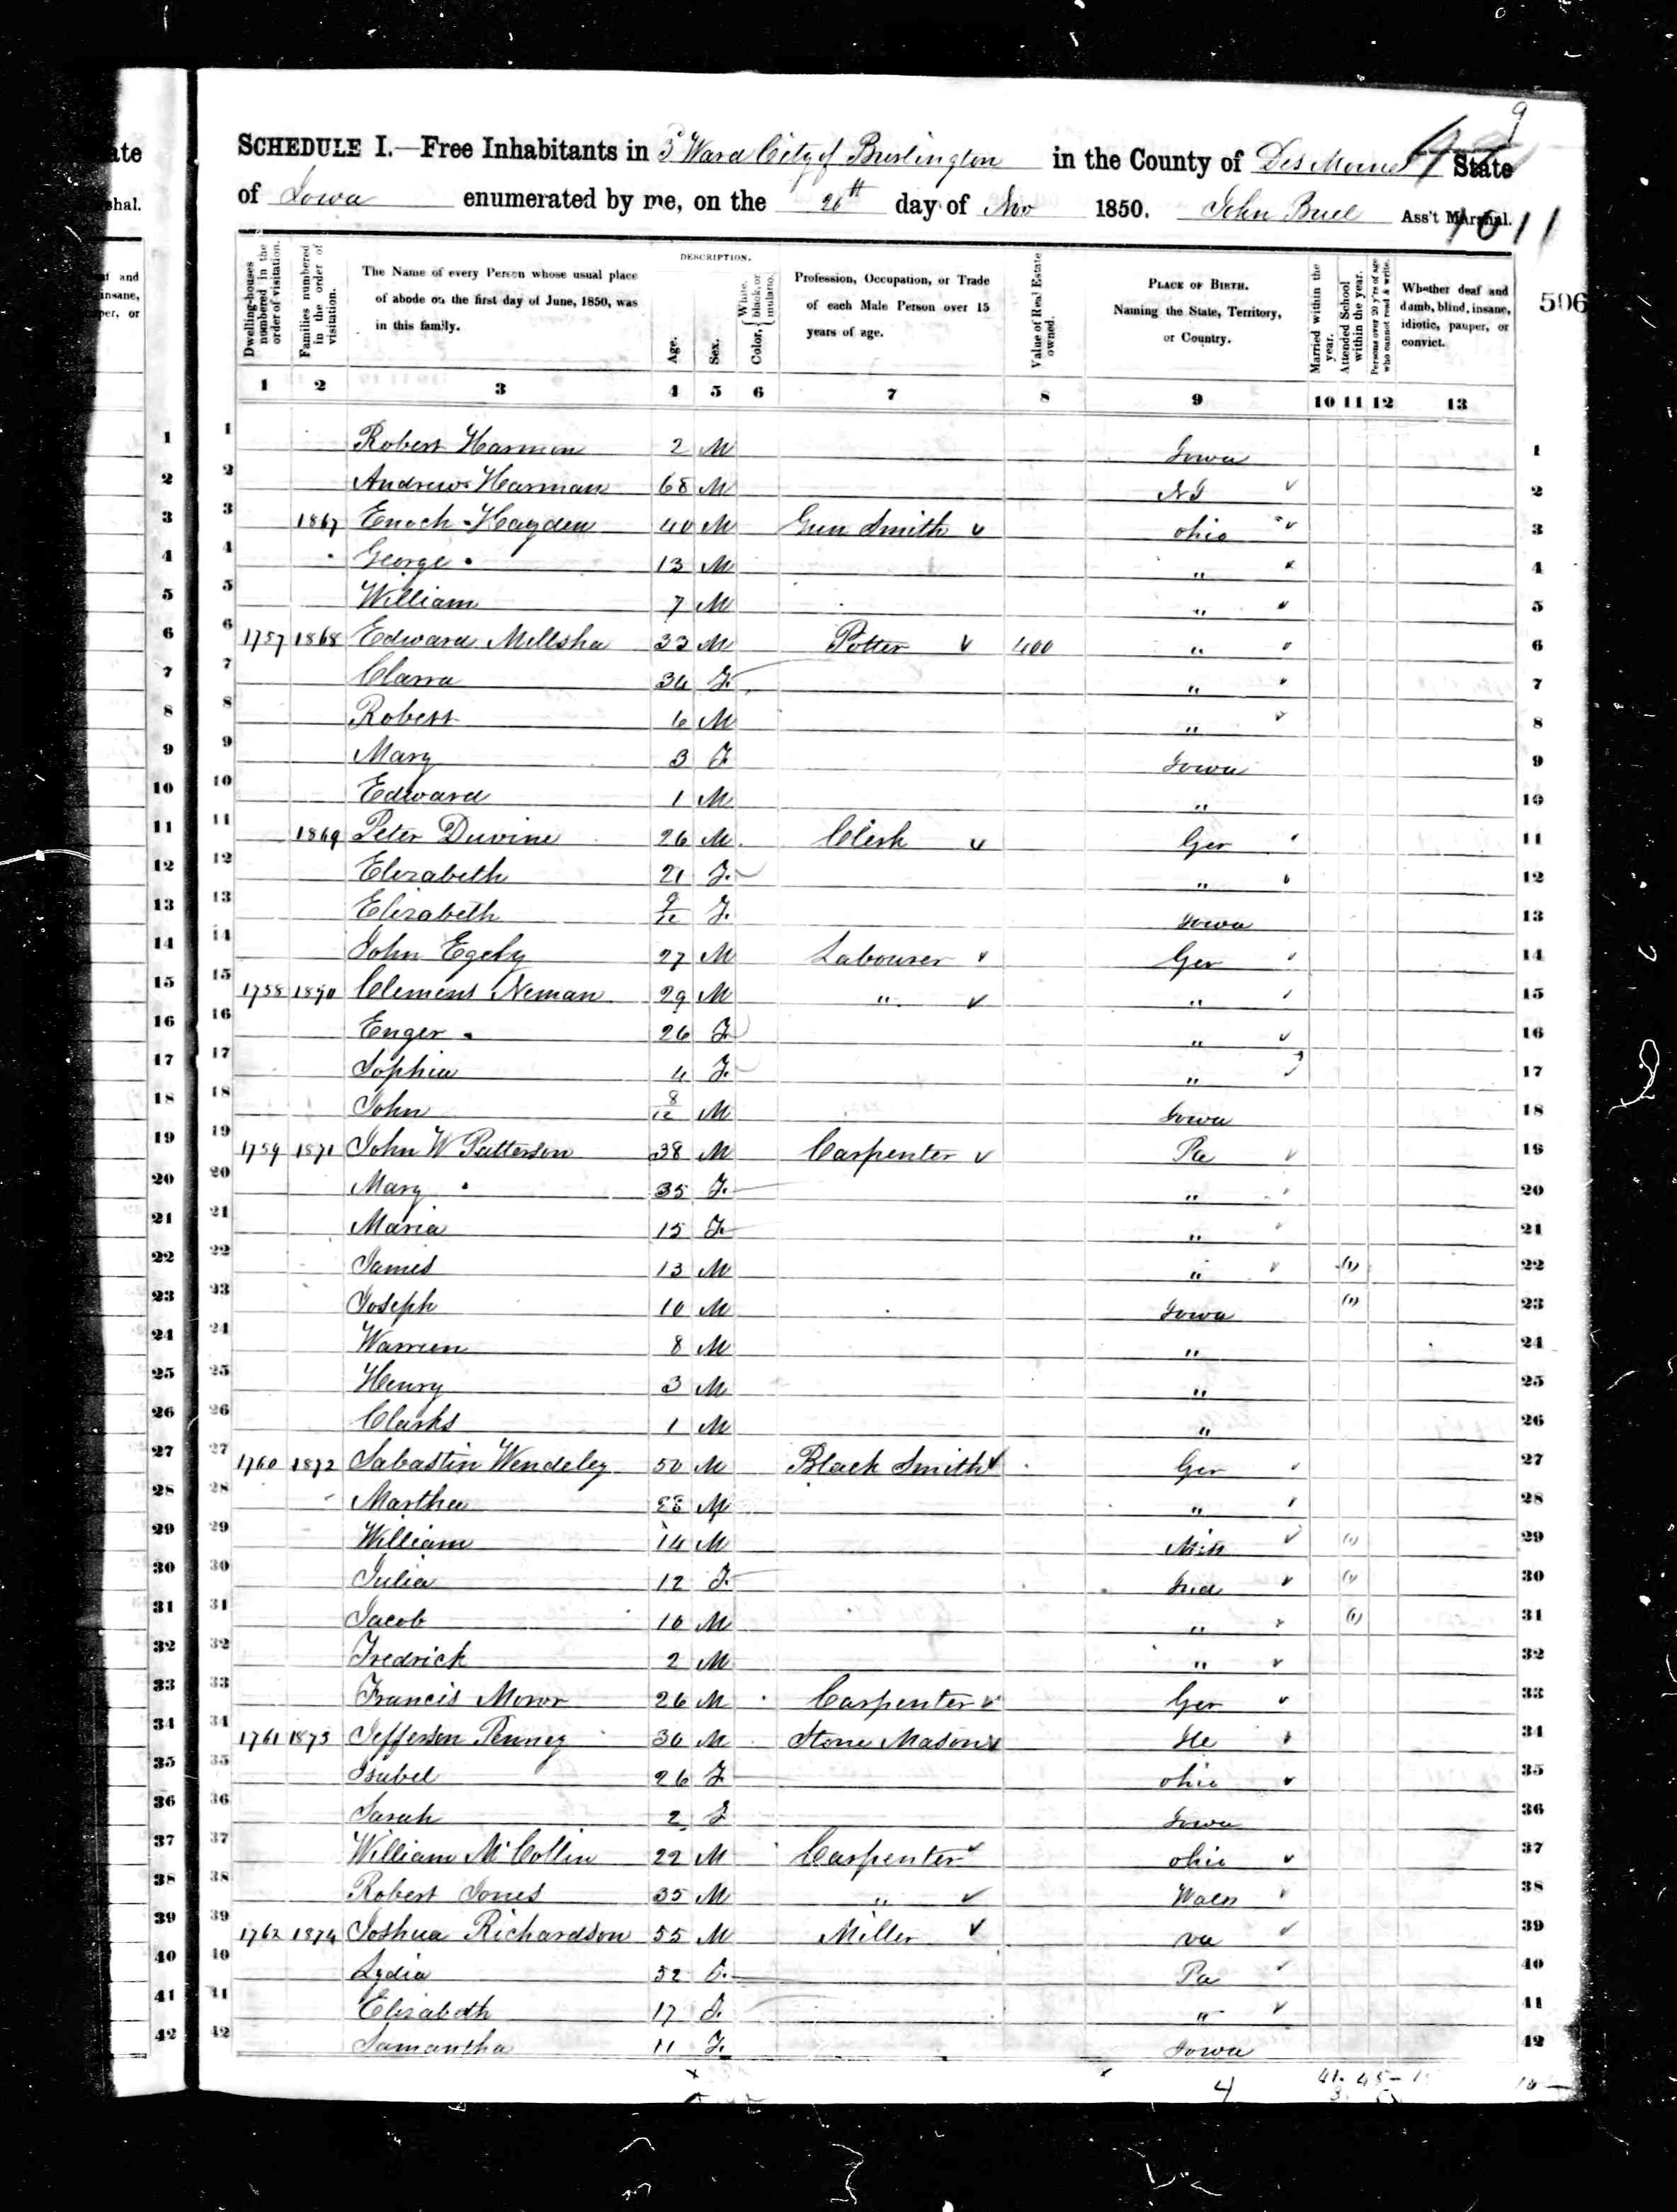 9
SCHEDULE I.—Free Inhabitants in 3d Ward City of Burlington in the County of Des Moines State
of Iowa enumerated by me, on the 20th day of Nov 1850. John Buel Ass't Marshal.
1011
506
DESCRIPTION.
Dwelling-houses numbered in the order of visitation. Families numbered in the order of visitation. The Name of every Person whose usual place of abode on the first day of June, 1850, was in this family. Age. Sex. Color, { White, black, or mulatto. Profession, Occupation, or Trade of each Male Person over 15 years of age. Value of Real Estate owned. PLACE OF BIRTH. Naming the State, Territory, or Country. Married within the year. Attended School within the year. Persons over 20 y'rs of age who cannot read & write. Whether deaf and dumb, blind, insane, idiotic, pauper, or convict.
1 2 3 4 5 6 7 8 9 10 11 12 13
1 Robert Harmon 2 M Iowa 1
2 Andrew Harman 68 M NJ 2
3 1867 Enoch Hayden 40 M Gun Smith ohio 3
4 George 13 M " 4
5 William 7 M " 5
6 1757 1868 Edward Millsha 33 M Potter 400 " 6
7 Clarra 34 F " 7
8 Robert 6 M " 8
9 Mary 3 F Iowa 9
10 Edward 1 M " 10
11 1869 Peter Duvine 26 M Clerk Ger 11
12 Elizabeth 21 F " 12
13 Elizabeth 9/12 F Iowa 13
14 John Egely 27 M Labourer Ger 14
15 1758 1870 Clemens Neman 29 M " " 15
16 Enger 26 F " 16
17 Sophia 4 F " 17
18 John 8/12 M Iowa 18
19 1759 1871 John W Patterson 38 M Carpenter Pa 19
20 Mary 35 F " 20
21 Maria 15 F " 21
22 James 13 M " (1) 22
23 Joseph 10 M Iowa (1) 23
24 Warren 8 M " 24
25 Henry 3 M " 25
26 Clarks 1 M " 26
27 1760 1872 Sabastin Wendeley 50 M Black Smith Ger 27
28 Martha M " 28
29 William 14 M (1) 29
30 Julia 12 F Ind (1) 30
31 Jacob 10 M " (1) 31
32 Fredrick 2 M " 32
33 Francis Moror 26 M Carpenter Ger 33
34 1761 1873 Jefferson Penney 30 M Stone Mason 34
35 Isabel 26 F ohio 35
36 Sarah 2 F Iowa 36
37 William McCollin 22 M Carpenter ohio 37
38 Robert Jones 35 M " Wales 38
39 1762 1874 Joshua Richardson 55 M Miller va 39
40 Lydia 52 F Pa 40
41 Elizabeth 17 F " 41
42 Samantha 11 F Iowa 42
4